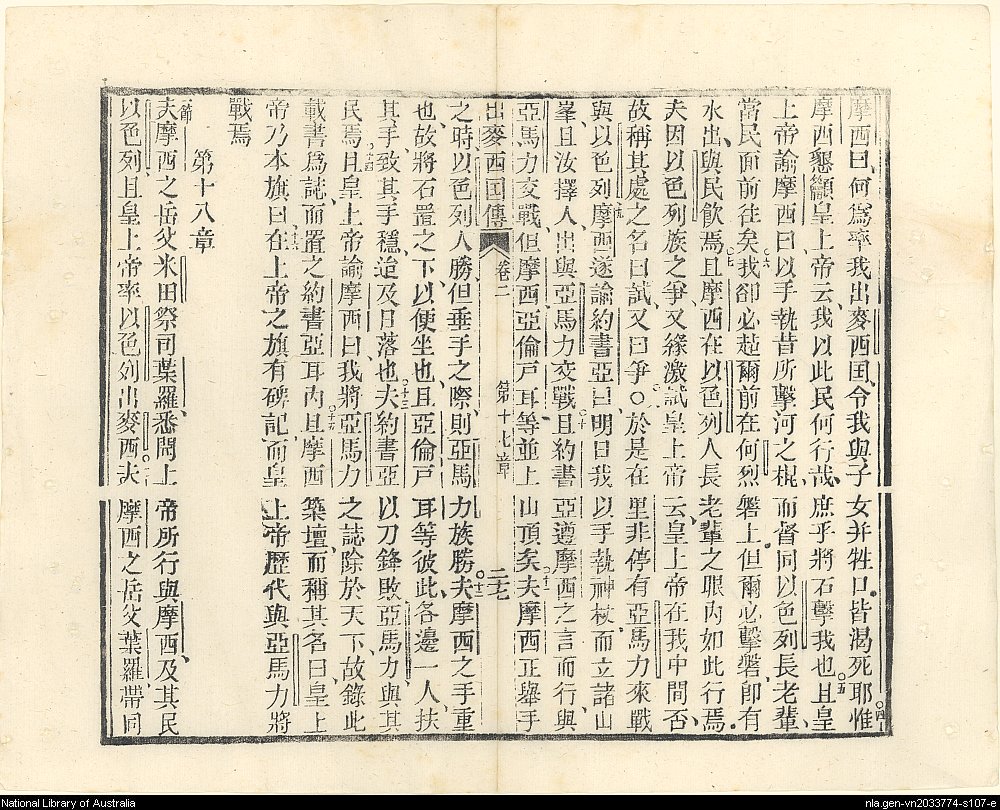 摩西曰何爲率我出麥西国令我與子女并牲口皆渴死耶惟
摩西懇籲皇上帝云我以此民何行哉庶乎將石擊我也且皇
上帝諭摩西曰以手執昔所擊河之棍而督同以色列長老輩
當民面前往矣我卻必起爾前在何烈磐上但爾必擊磐卽有
水出與民飲焉且摩西在以色列人長老輩之眼內如此行焉
夫因以色列族之爭又緣激試皇上帝云皇上帝在我中間否
故稱其處之名曰試又曰爭○於是在里非停有亞馬力來戰
與以色列摩西遂諭約書亞曰明日我以手執神杖而立諸山
峯且汝擇人出與亞馬力交戰且約書亞遵摩西之言而行與
亞馬力交戰但摩西亞倫戸耳等並上山頂矣夫摩西正舉手
出麥西国傳 卷二 第十七章 二七
之時以色列人勝但垂手之際則亞馬力族勝夫摩西之手重
也故將石置之下以便坐也且亞倫戸耳等彼此各邊一人扶
其手致其手穩迨及日落也夫約書亞以刀鋒敗亞馬力與其
民焉且皇上帝諭摩西曰我將亞馬力之誌除於天下故錄此
載書爲誌而置之約書亞耳內且摩西築壇而稱其名曰皇上
帝乃本旗曰在上帝之旗有碑記而皇上帝歴代與亞馬力將
戰焉
第十八章
一節夫摩西之岳父米田祭司葉羅悉聞上帝所行與摩西及其民
以色列且皇上帝率以色列出麥西夫摩西之岳父葉羅帶同
National Library of Australia
nla.gen-vn2033774-s107-e